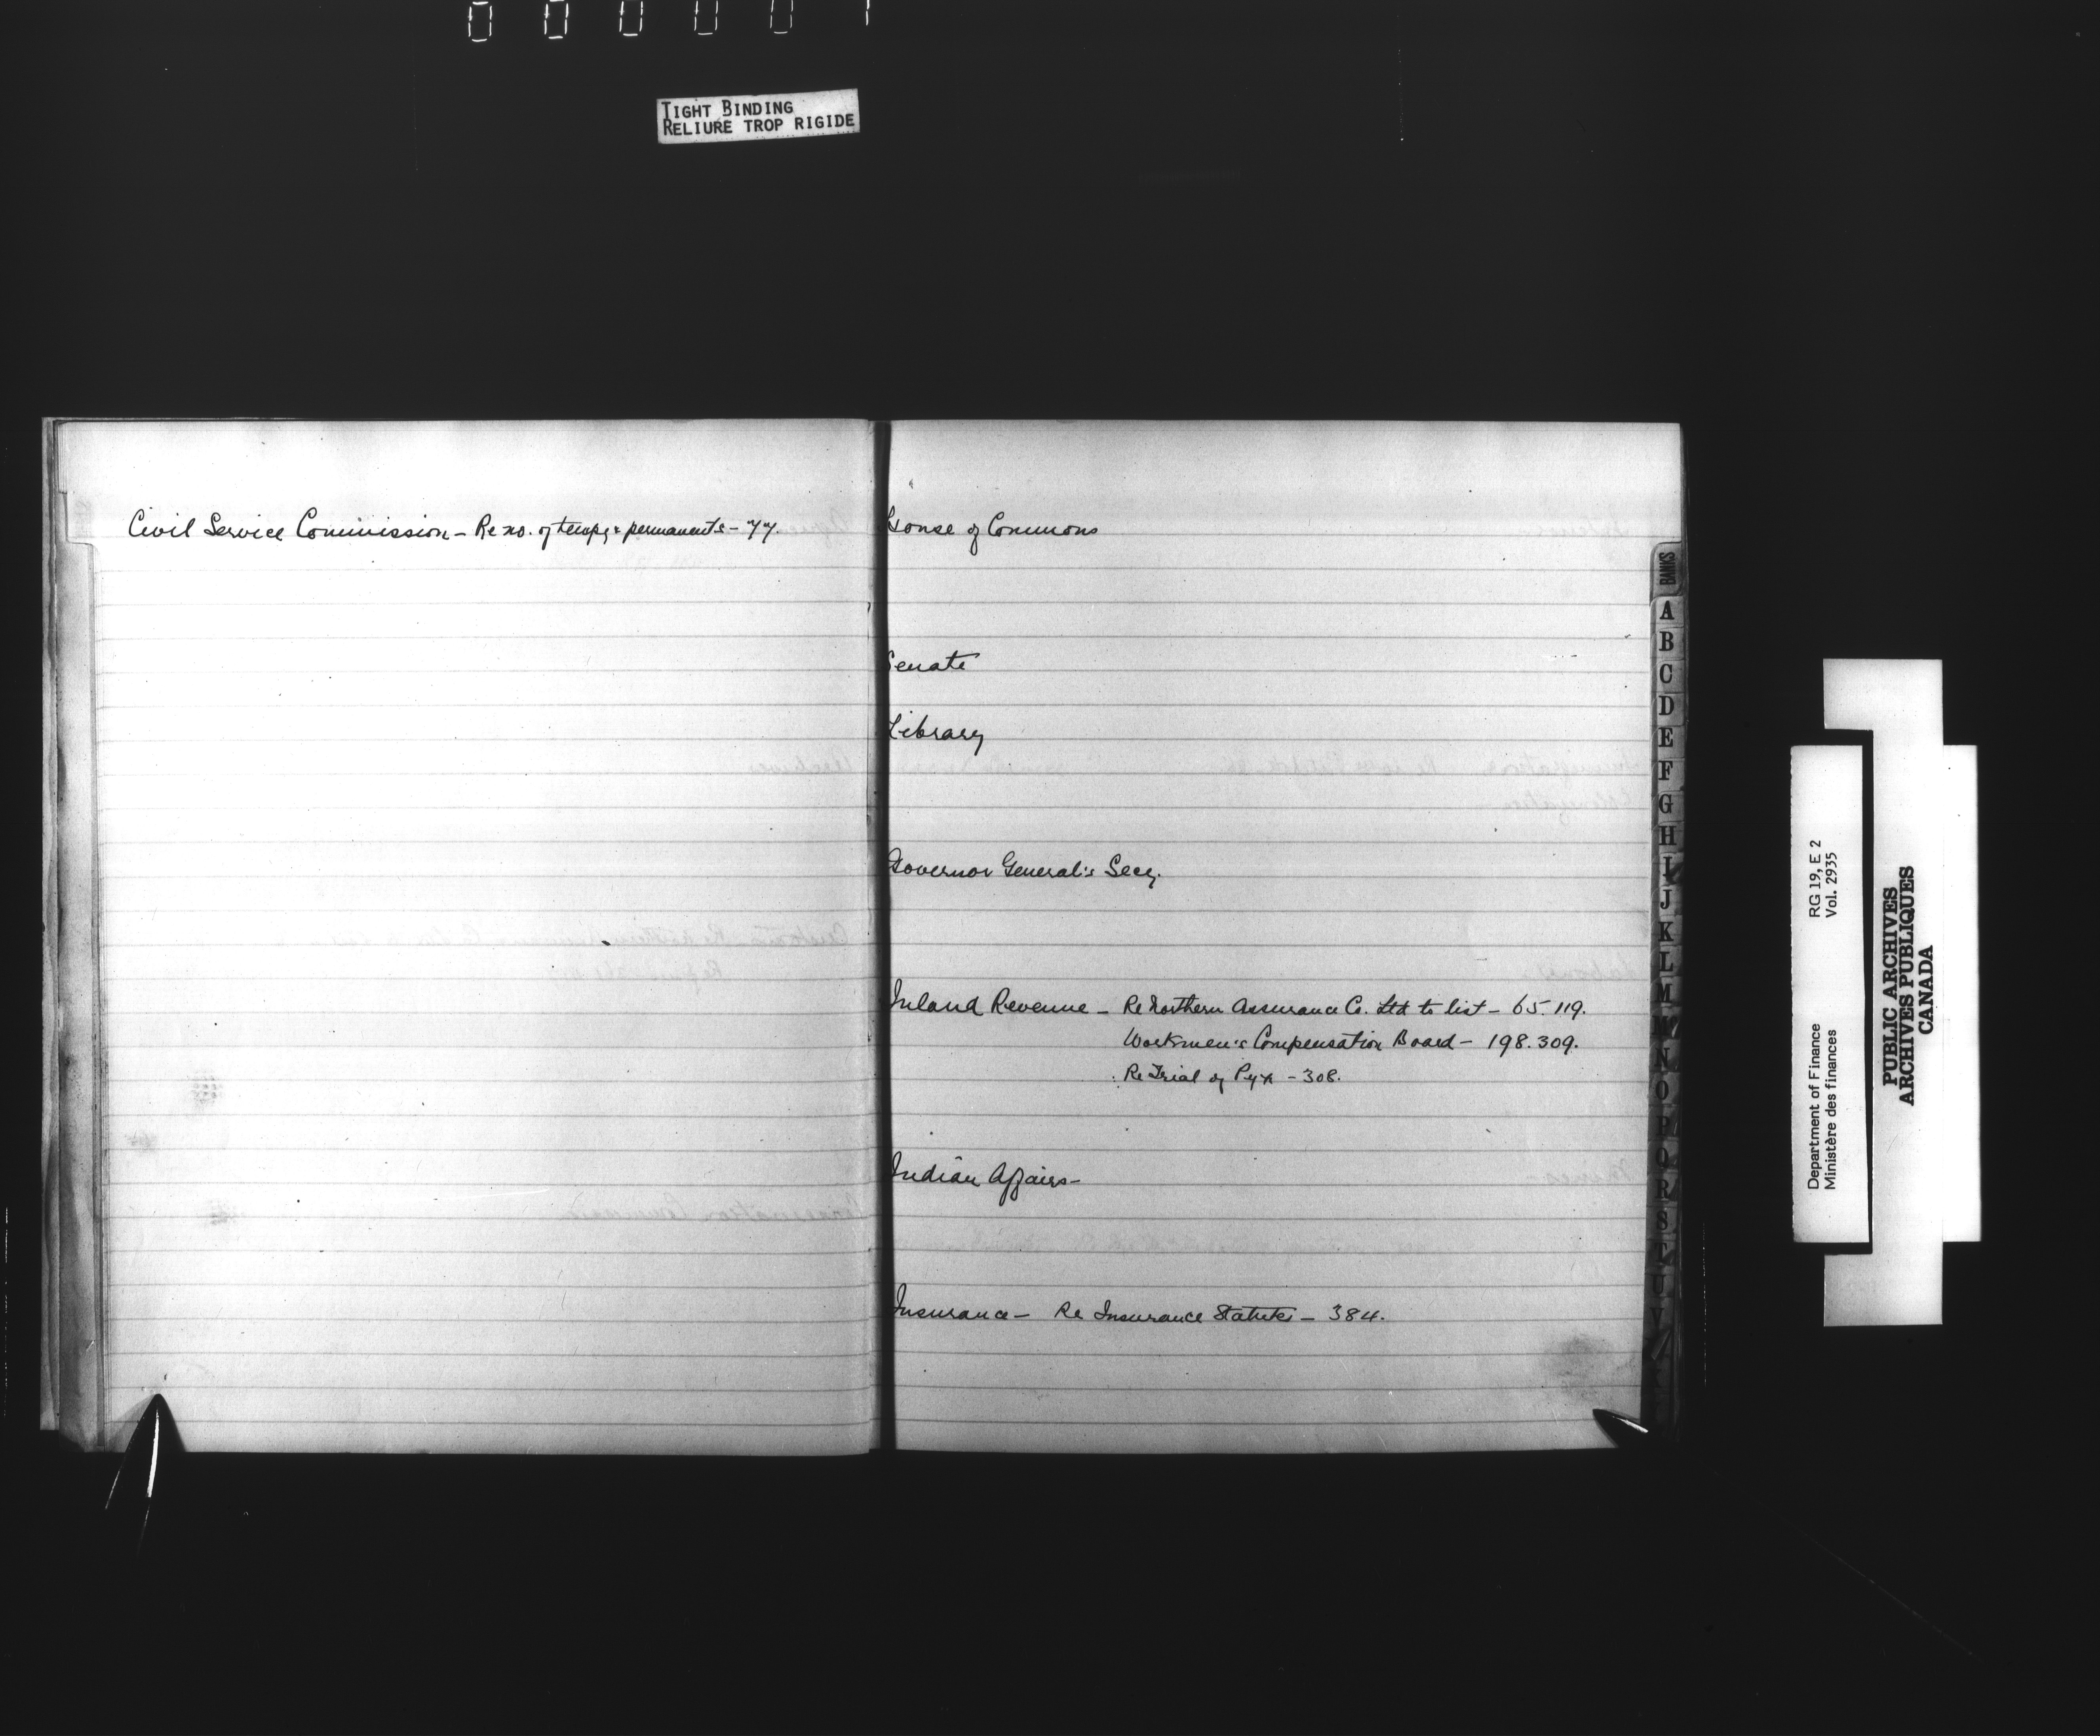 TIGHT BINDING
RELIURE TROP RIGIDE
Civil Service Commission – Re no. of tempy & permanents – 77.
House of Commons
Senate
Library
Governor General's Secy.
Inland Revenue – Re Northern Assurance Co. Ltd to list – 65. 119.
Workmen's Compensation Board – 198. 309.
Re Trial of Pyx – 308.
Indian Affairs –
Insurance – Re Insurance Statutes – 384.
BANKS
A
B
C
D
E
F
G
H
I
J
K
L
M
Mc
N
O
P
Q
R
S
T
U
V
Department of Finance RG 19, E 2
Ministère des finances Vol. 2935
PUBLIC ARCHIVES
ARCHIVES PUBLIQUES
CANADA